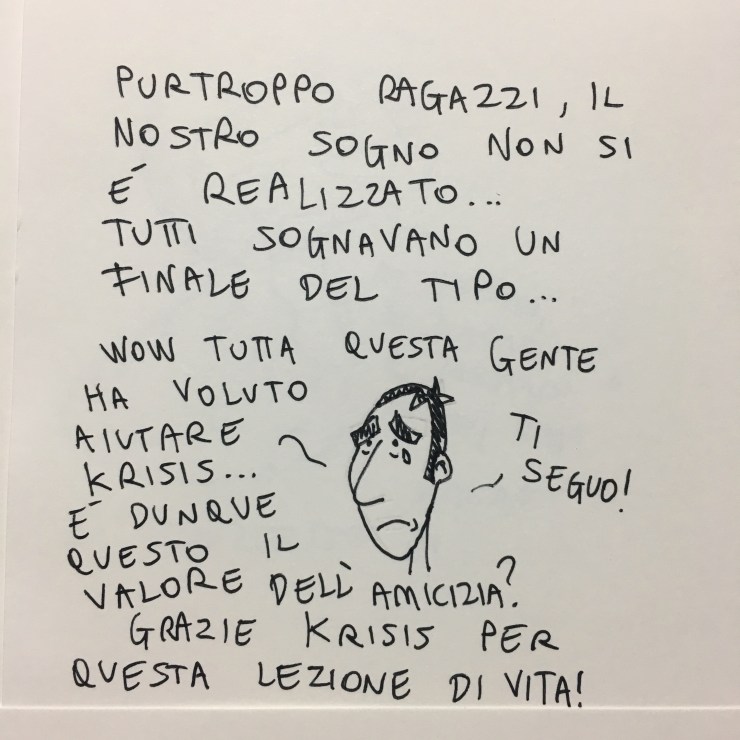 PURTROPPO RAGAZZI, IL
NOSTRO SOGNO NON SI
É REALIZZATO...
TUTTI SOGNAVANO UN
FINALE DEL TIPO...
WOW TUTTA QUESTA GENTE
HA VOLUTO
AIUTARE
KRISIS...
É DUNQUE
QUESTO IL
VALORE DELL' AMICIZIA?
GRAZIE KRISIS PER
QUESTA LEZIONE DI VITA!
TI
SEGUO!